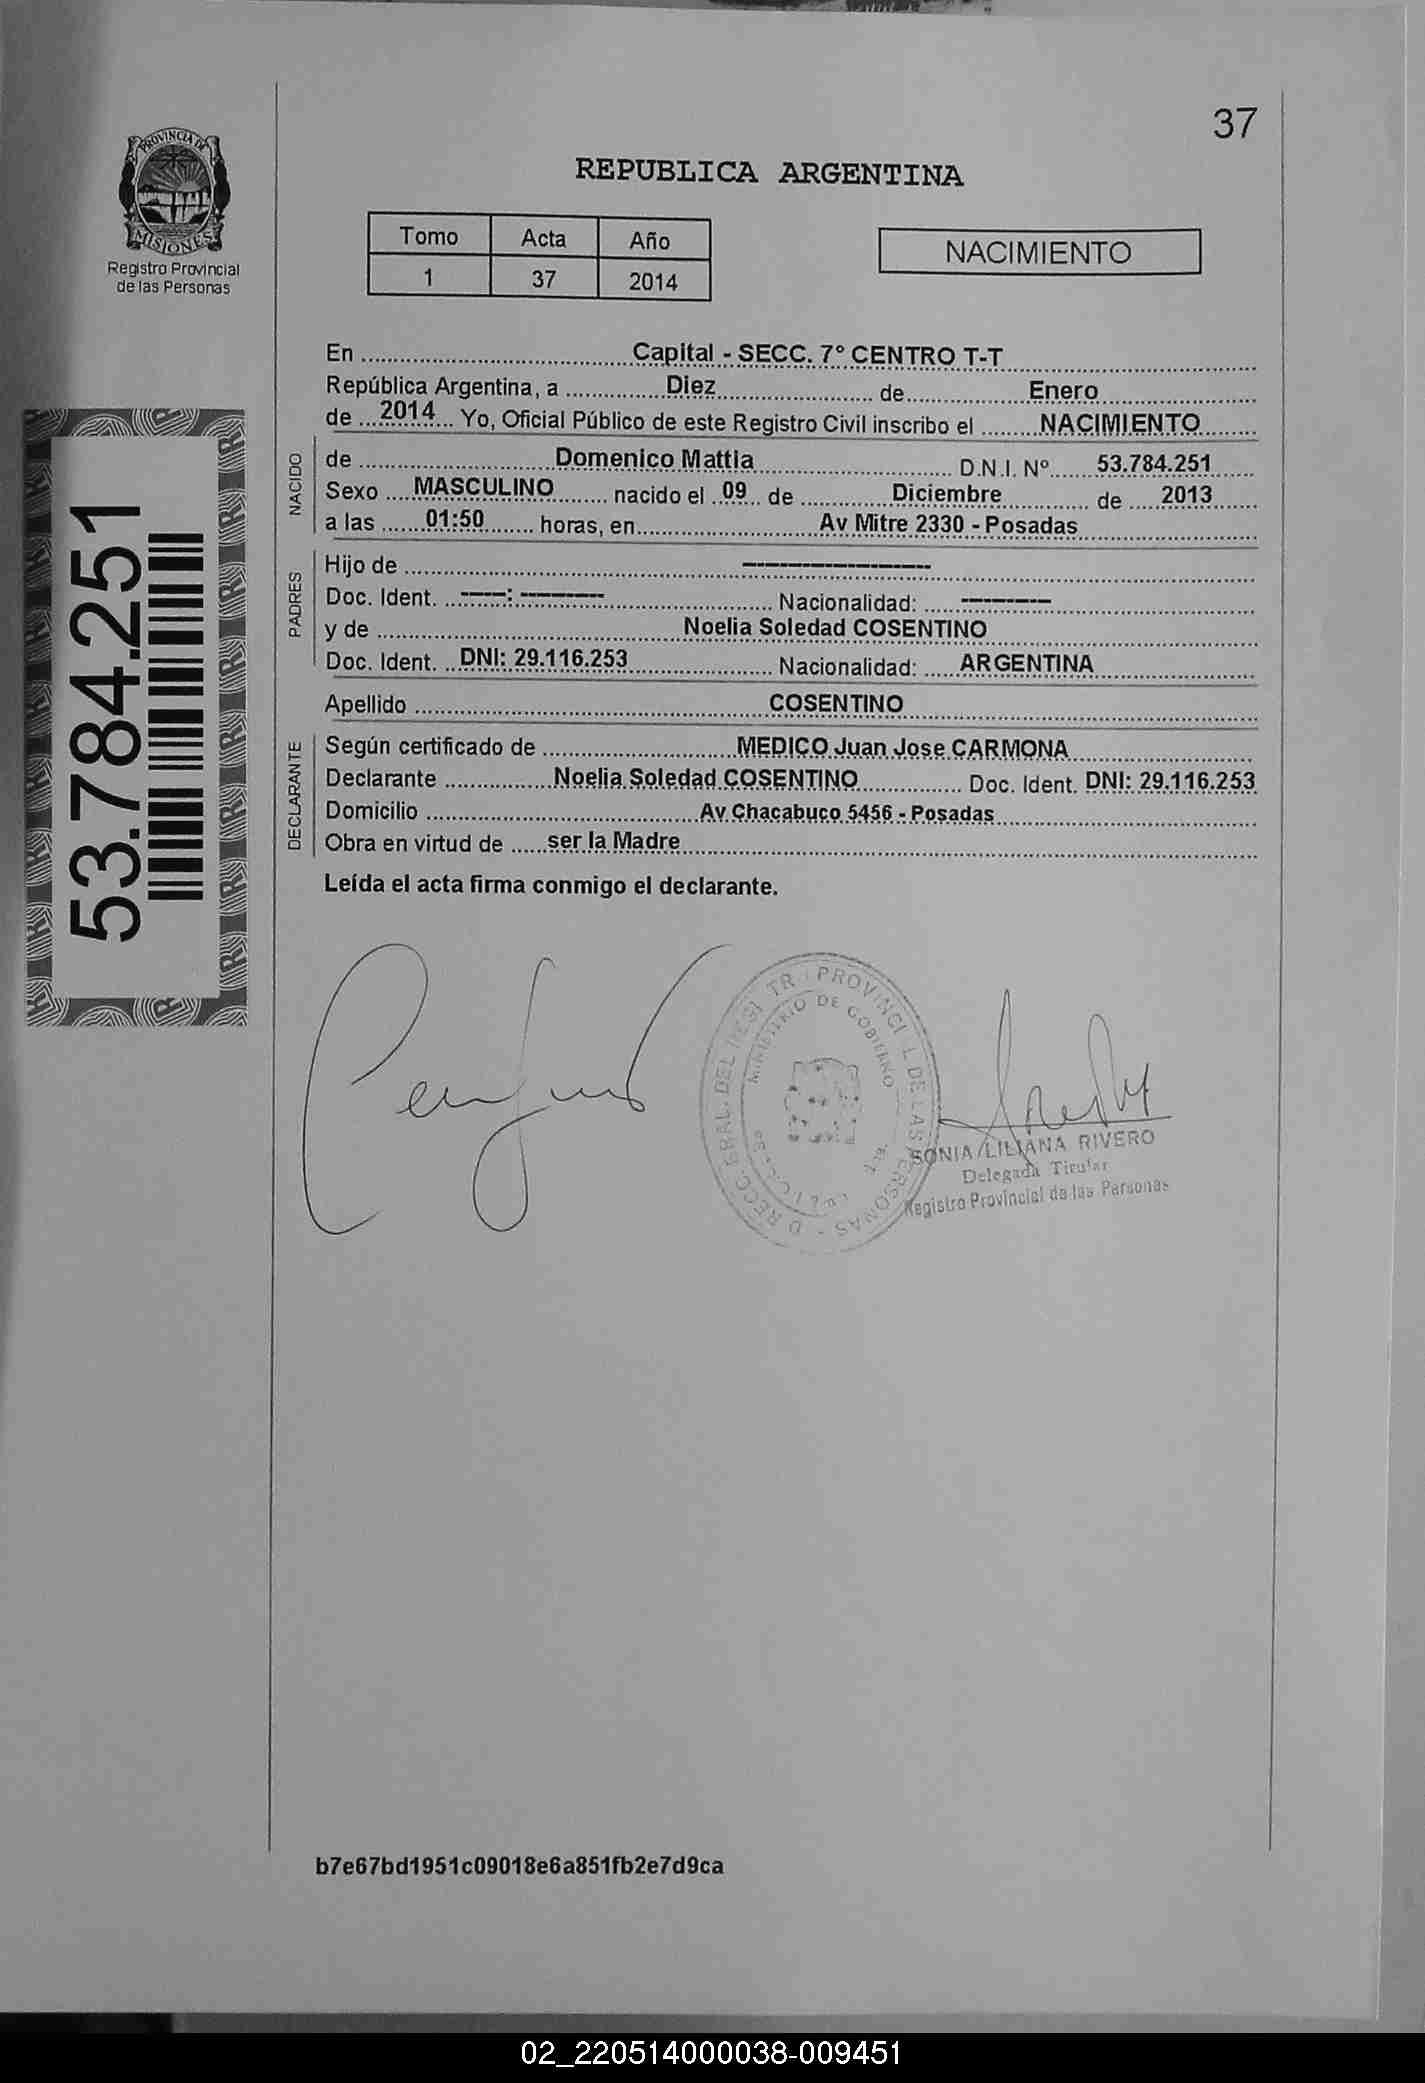 37
PROVINCIA DE
MISIONES
Registro Provincial
de las Personas
REPUBLICA ARGENTINA
Tomo Acta Año
1 37 2014
NACIMIENTO
En ........ Capital - SECC. 7° CENTRO T-T
República Argentina, a ........ Diez ........ de ........ Enero
de ... 2014 ... Yo, Oficial Público de este Registro Civil inscribo el ........ NACIMIENTO
NACIDO
de ........ Domenico Mattia ........ D.N.I. Nº ...... 53.784.251
Sexo .... MASCULINO ........ nacido el .. 09 .. de ........ Diciembre ........ de ..... 2013
a las ...... 01:50 ....... horas, en ........ Av Mitre 2330 - Posadas
PADRES
Hijo de ........ --------------------
Doc. Ident. ..-----: --------- ........ Nacionalidad: ..... ----------
y de ........ Noelia Soledad COSENTINO
Doc. Ident. .. DNI: 29.116.253 ........ Nacionalidad: ..... ARGENTINA
Apellido ........ COSENTINO
DECLARANTE
Según certificado de ........ MEDICO Juan Jose CARMONA
Declarante ........ Noelia Soledad COSENTINO ........ Doc. Ident. DNI: 29.116.253
Domicilio ........ Av Chacabuco 5456 - Posadas
Obra en virtud de ..... ser la Madre
Leída el acta firma conmigo el declarante.
53.784.251
MINISTERIO DE GOBIERNO
SONIA LILIANA RIVERO
Delegada Titular
Registro Provincial de las Personas
b7e67bd1951c09018e6a851fb2e7d9ca
02_220514000038-009451